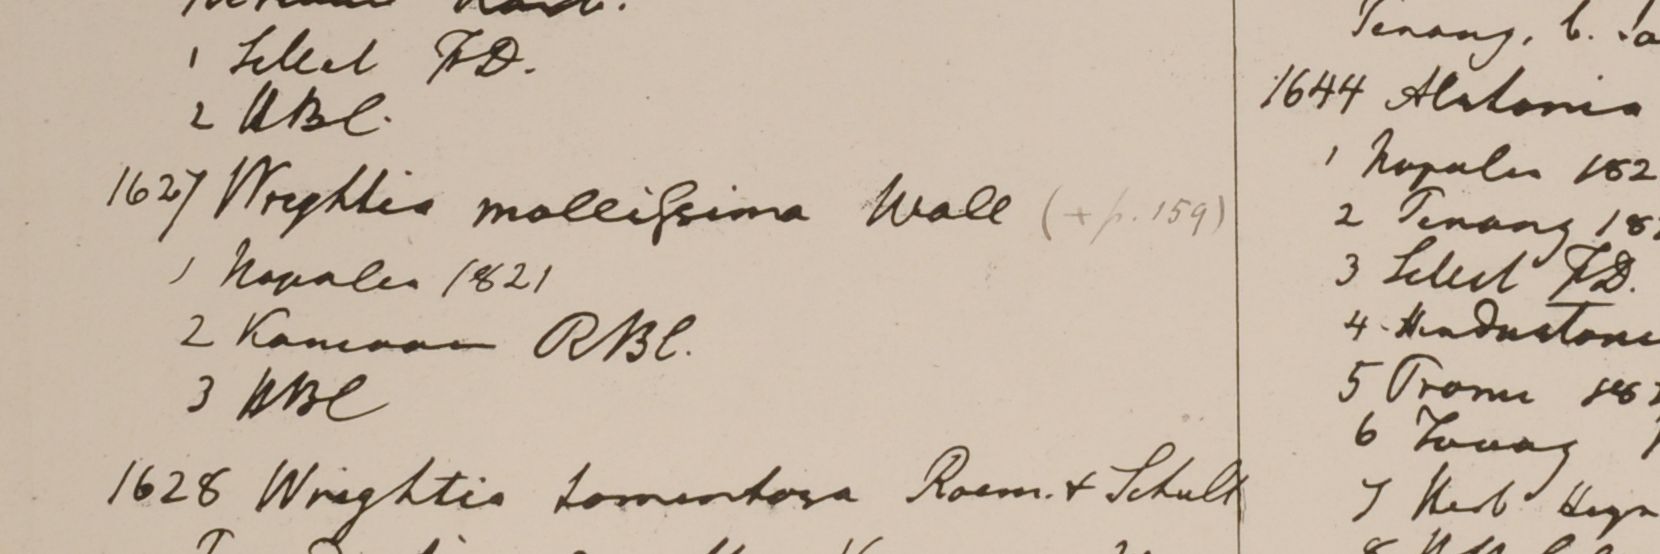 1 Silhet FD.
2 HBC.
1627 Wrightia mollissima Wall (+ p. 159)
1 Napalia 1821
2 Kamaon RBC.
3 HBC
1628 Wrightia tomentosa Roem. & Schult
Penang, C.
1644 Alstonia
1 Napalia 182
2 Penang 182
3 Silhet FD.
4 Hindustan
5 Prome 182
6 Tavoy
7 Herb Heyn
8